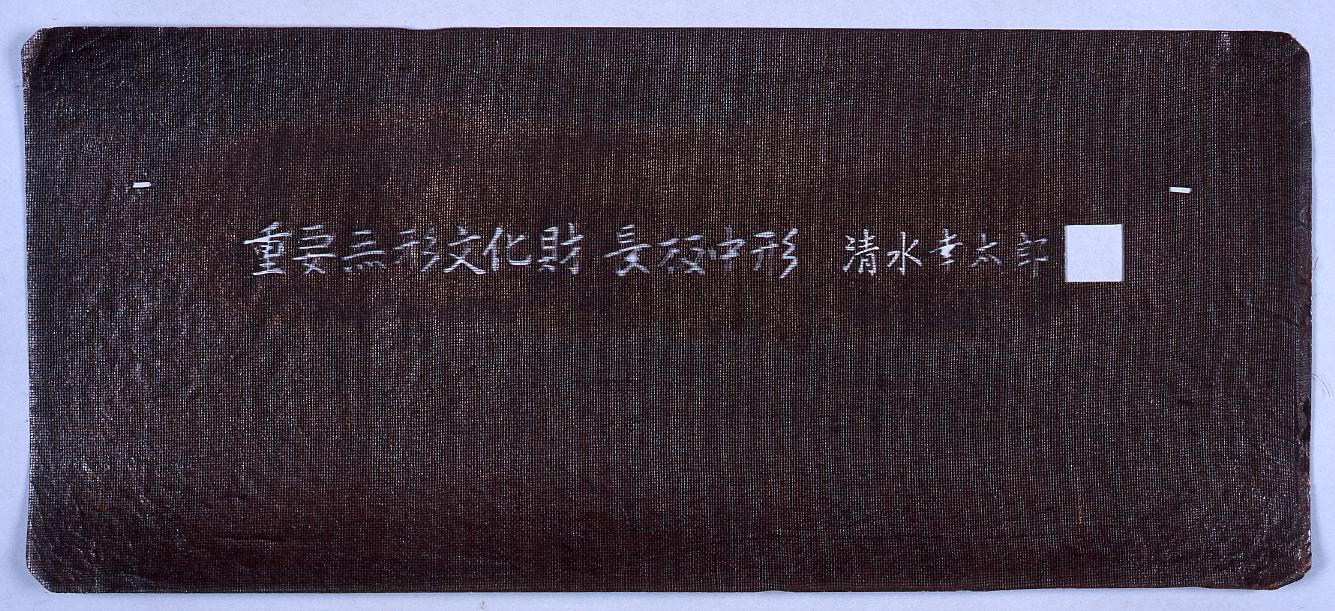 重要無形文化財 長板中形 清水幸太郎